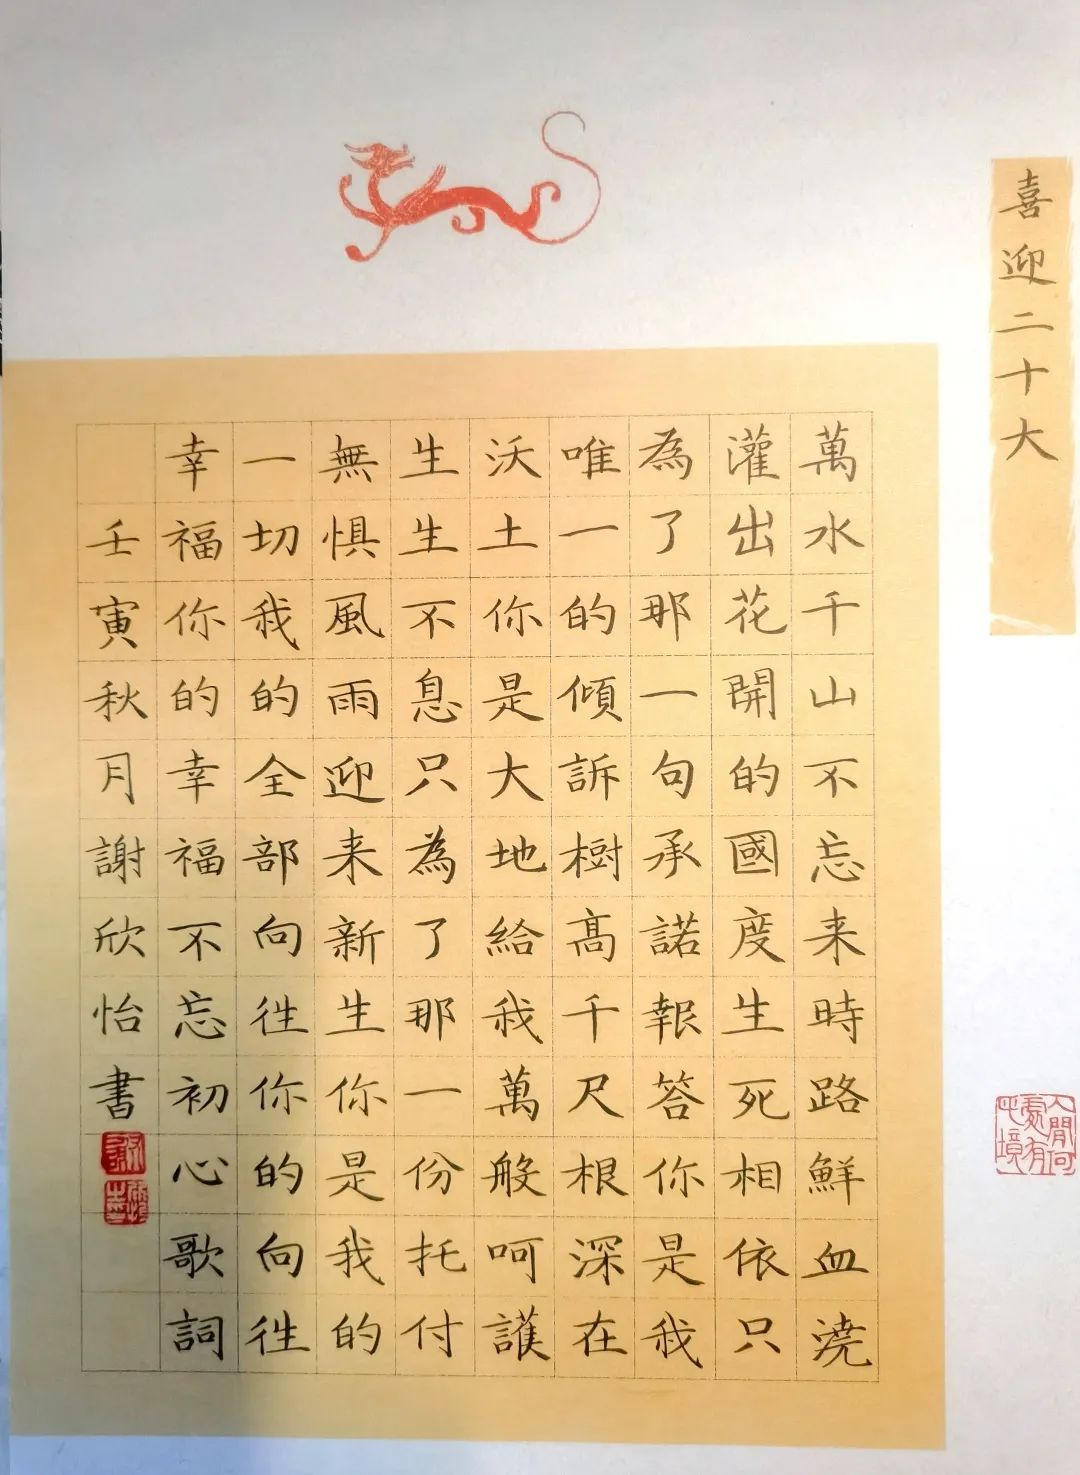 喜迎二十大
萬水千山不忘来時路鮮血澆
灌出花開的國度生死相依只
為了那一句承諾報答你是我
唯一的傾訴樹高千尺根深在
沃土你是大地給我萬般呵護
生生不息只為了那一份托付
無惧風雨迎来新生你是我的
一切我的全部向往你的向往
幸福你的幸福不忘初心歌詞
壬寅秋月謝欣怡書